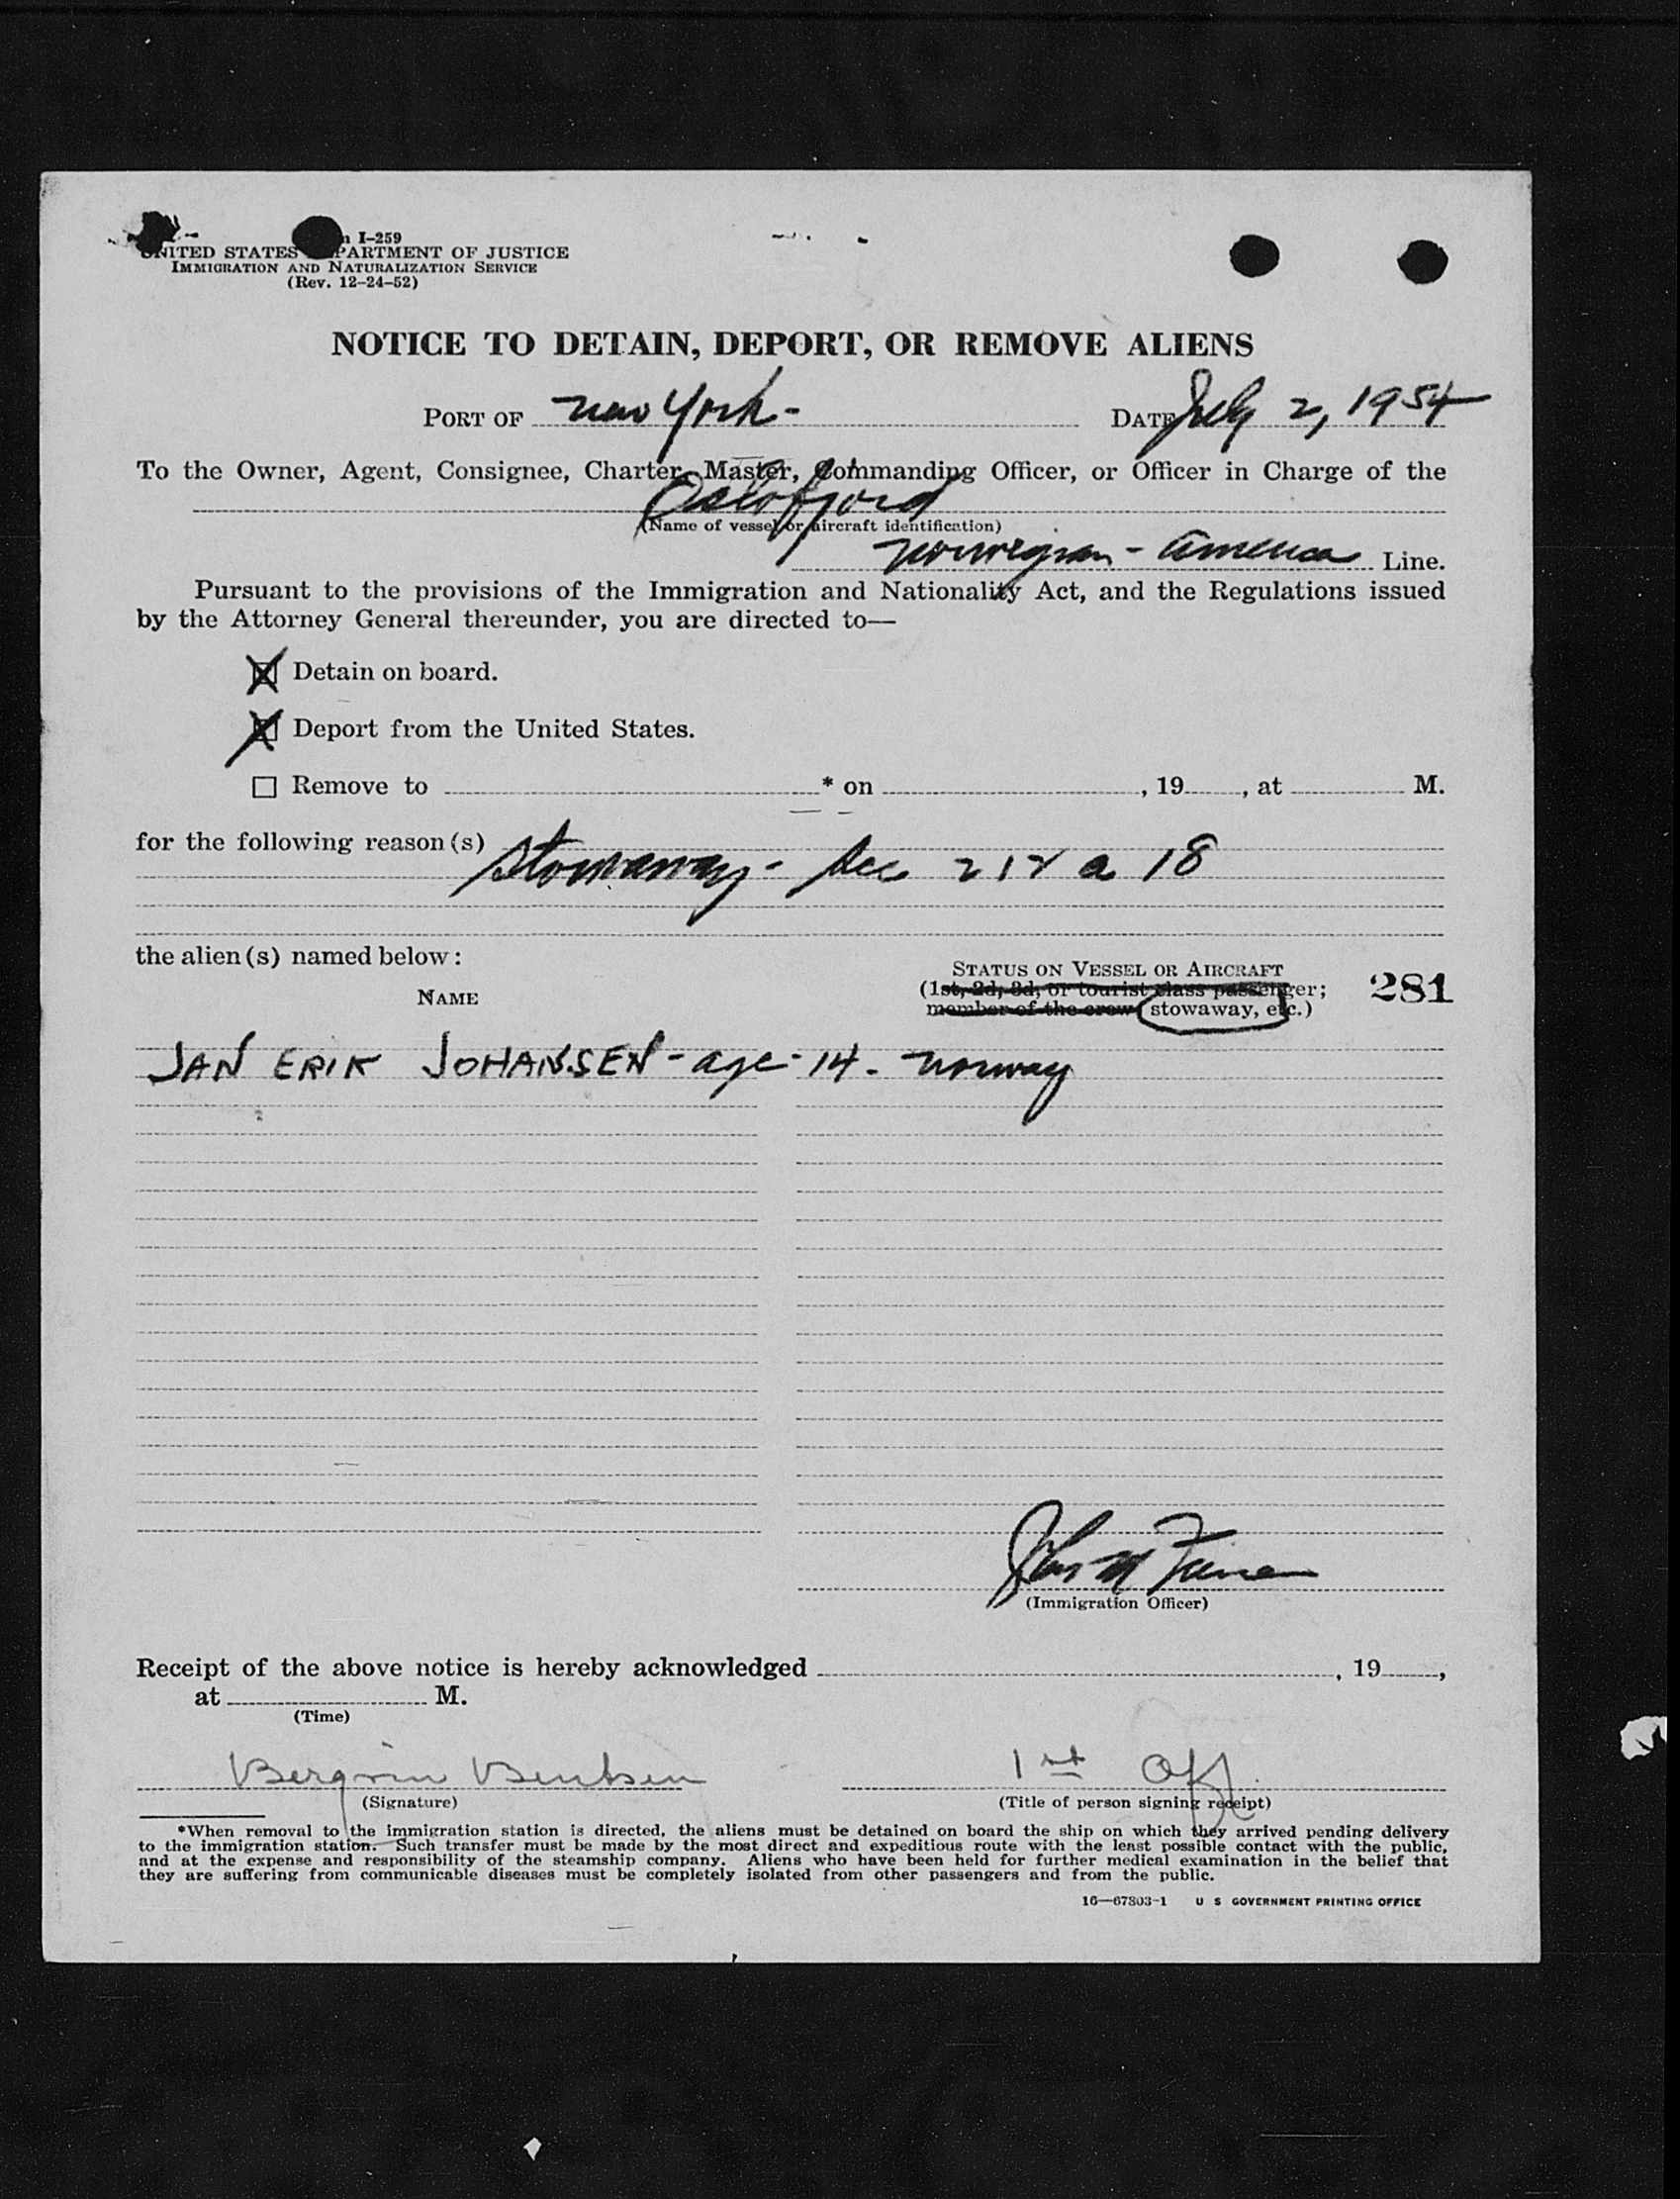 I-259
UNITED STATES DEPARTMENT OF JUSTICE
IMMIGRATION AND NATURALIZATION SERVICE
(Rev. 12-24-52)
NOTICE TO DETAIN, DEPORT, OR REMOVE ALIENS
PORT OF New York - DATE July 2, 1954
To the Owner, Agent, Consignee, Charter, Master, Commanding Officer, or Officer in Charge of the
Oslofjord
(Name of vessel or aircraft identification)
Norwegian - America Line.
Pursuant to the provisions of the Immigration and Nationality Act, and the Regulations issued
by the Attorney General thereunder, you are directed to—
Detain on board.
Deport from the United States.
Remove to * on , 19 , at M.
for the following reason(s)
Stowaway - Sec 212 a 18
the alien(s) named below:
STATUS ON VESSEL OR AIRCRAFT
NAME (1st, 2d, 3d, or tourist class passenger; 281
member of the crew; stowaway, etc.)
JAN ERIK JOHANSEN - age - 14 - Norway
John M
(Immigration Officer)
Receipt of the above notice is hereby acknowledged , 19 ,
at M.
(Time)
Bentsen 1st Off.
(Signature) (Title of person signing receipt)
*When removal to the immigration station is directed, the aliens must be detained on board the ship on which they arrived pending delivery
to the immigration station. Such transfer must be made by the most direct and expeditious route with the least possible contact with the public,
and at the expense and responsibility of the steamship company. Aliens who have been held for further medical examination in the belief that
they are suffering from communicable diseases must be completely isolated from other passengers and from the public.
16—67803-1 U S GOVERNMENT PRINTING OFFICE